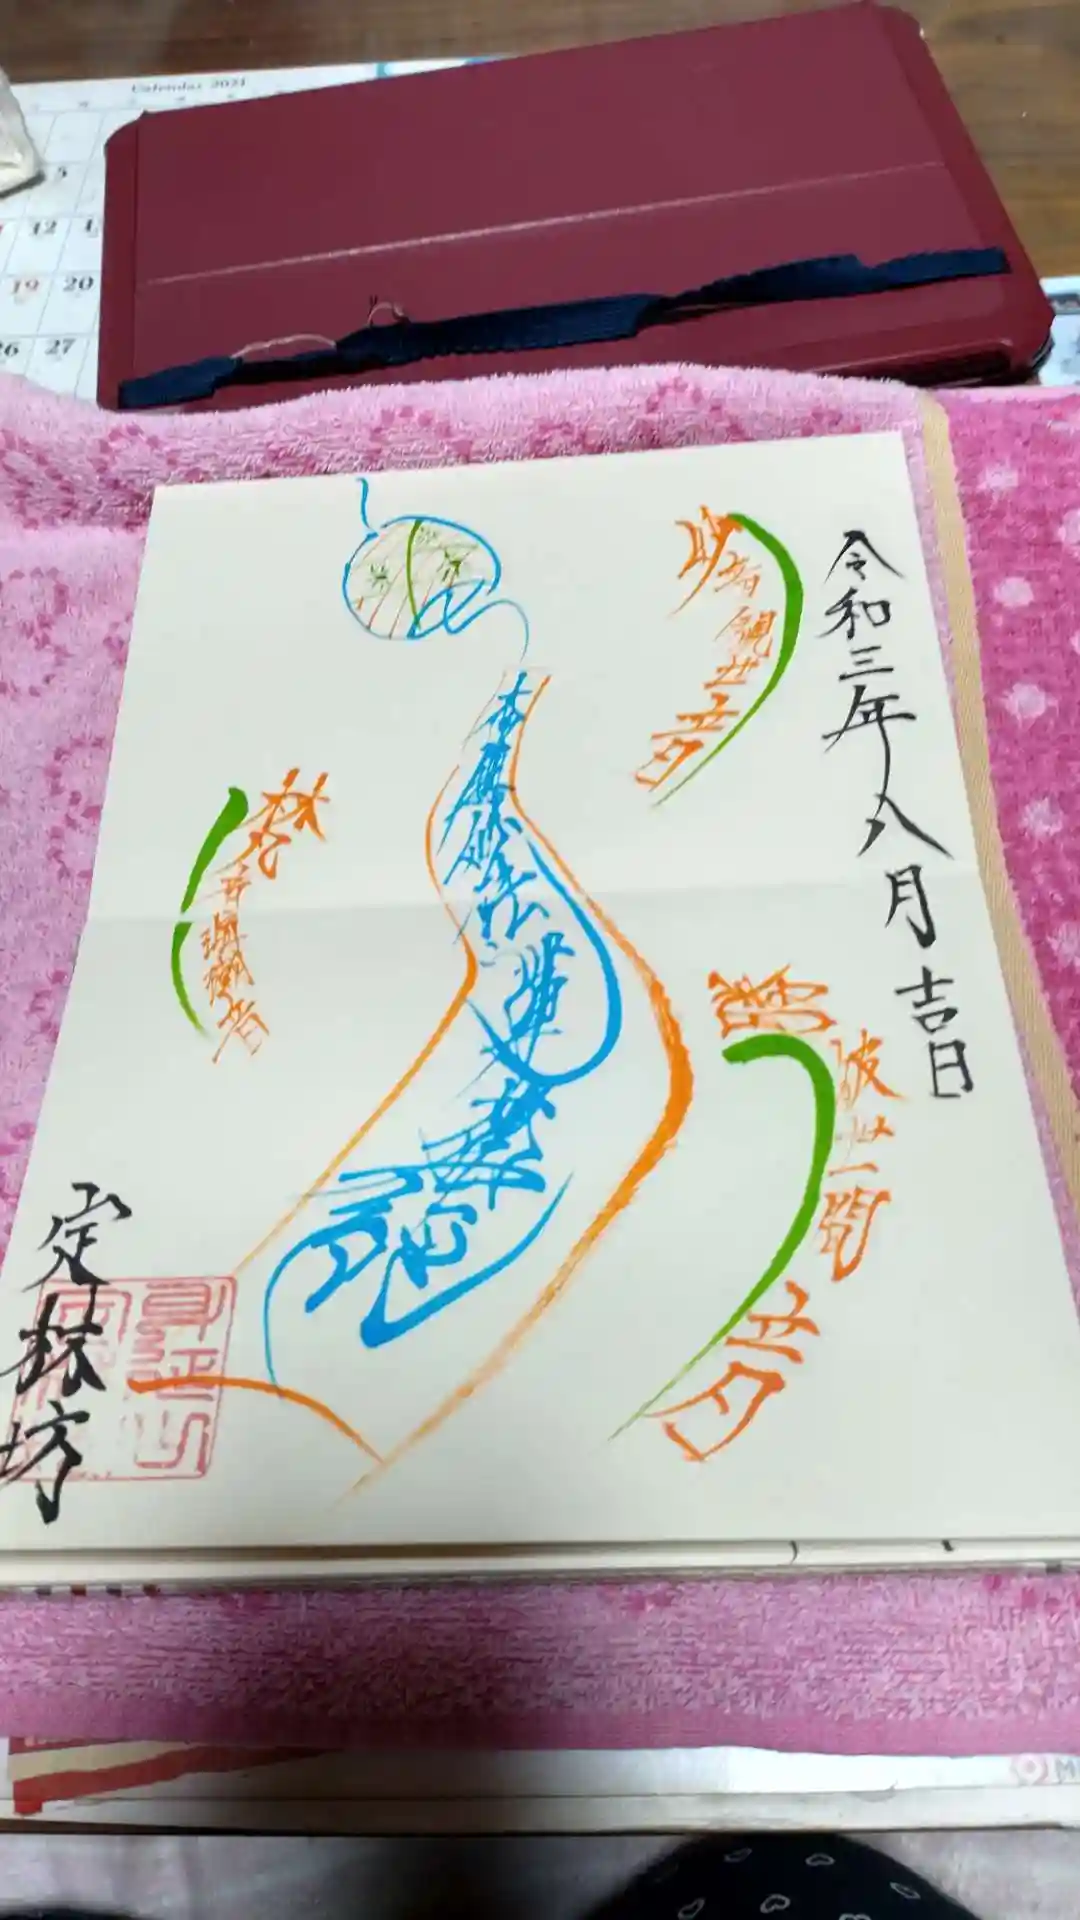 Calendar 2021
5
12
19 20
26 27
令和三年八月吉日
妙音観世音
勝彼世間音
南無妙法蓮華經
梵音海潮音
定林坊
身延山